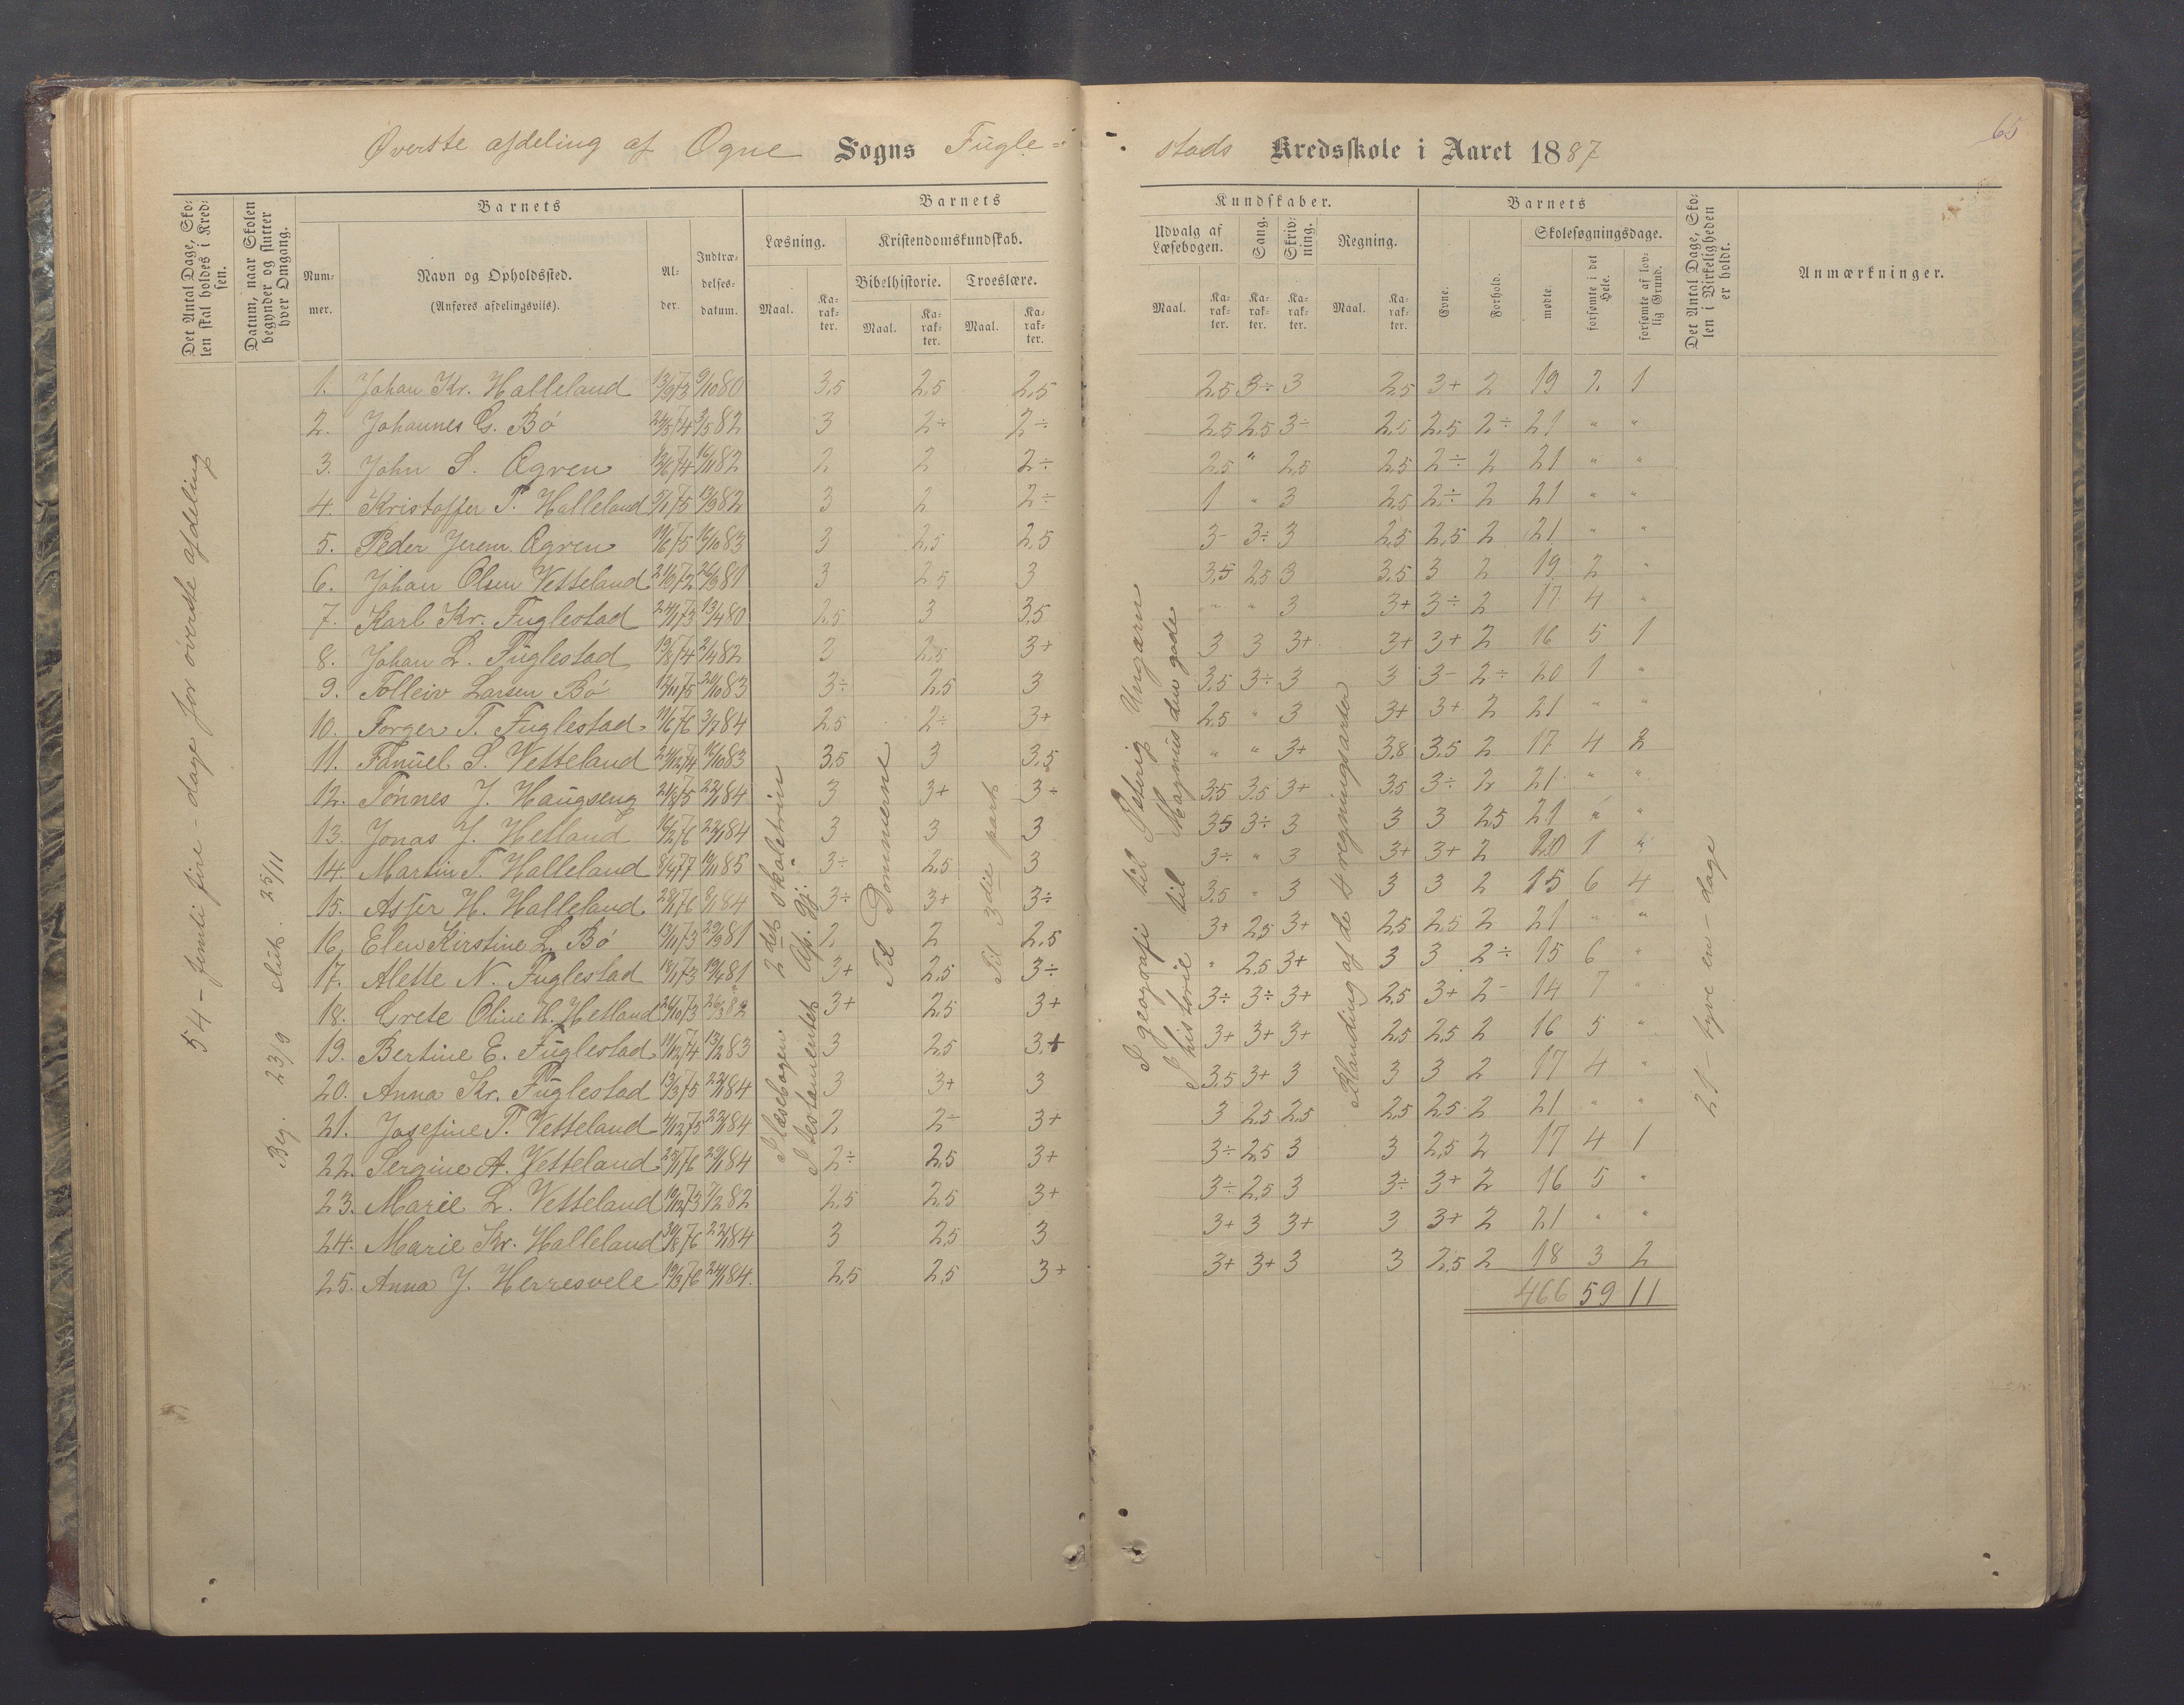 65
Øverste afdeling af Ogne Sogns Fugle=
stads Kredsskole i Aaret 1887
Det Antal Dage, Sko-
len skal holdes i Kred-
sen.
Datum, naar Skolen
begynder og slutter
hver Omgang.
Barnets
Num-
mer.
Navn og Opholdssted.
(Anføres afdelingsvils).
Al-
der.
Indtræ-
delses-
datum.
Barnets
Læsning.
Maal.
Ka-
rak-
ter.
Kristendomskundskab.
Bibelhistorie.
Maal.
Ka-
rak-
ter.
Troeslære.
Maal.
Ka-
rak-
ter.
Kundskaber.
Udvalg af
Læsebogen.
Maal.
Ka-
rak-
ter.
Sang.
Ka-
rak-
ter.
Skriv-
ning.
Ka-
rak-
ter.
Regning.
Maal.
Ka-
rak-
ter.
Barnets
Evne.
Forhold.
Skolesøgningsdage.
mødte.
forsømte i det
Hele.
forsømte af lov-
lig Grund.
Det Antal Dage, Sko-
len i Virkeligheden
er holdt.
Anmærkninger.
54 - femti fire - dage for øverste afdeling
Beg. 23/9 slut. 25/11
I læsebogen 2det skoletrin
I testamentet Ap. gj.
Til Dommerne
Til 3die part
I geografi til Østerig Ungarn
I historie til Magnus den gode
Blanding af de 4 regningsarter
21 - tyve en - dage
1. Johan Kr. Halleland 13/9 73 9/10 80 3,5 2,5 2,5 2,5 3÷ 3 2,5 3+ 2 19 2 1
2. Johannes G. Bø 24/5 74 3/5 82 3 2÷ 2÷ 2,5 2,5 3÷ 2,5 2,5 2÷ 21 " "
3. John S. Ogren 13/6 74 16/11 82 2 2 2÷ 2,5 " 2,5 2,5 2÷ 2 21 " "
4. Kristoffer T. Halleland 5/1 75 13/9 82 3 2 2÷ 1 " 3 2,5 2÷ 2 21 " "
5. Peder Jerem. Ogren 19/6 75 15/10 83 3 2,5 2,5 3- 3÷ 3 2,5 2,5 2 21 " "
6. Johan Olsen Vetteland 21/9 72 26/9 81 3 2,5 3 3,5 2,5 3 3,5 3 2 19 2 "
7. Karl Kr. Fuglestad 24/11 73 13/4 80 2,5 3 3,5 " " 3 3+ 3÷ 2 17 4 "
8. Johan L. Fuglestad 19/8 74 2/4 82 3 2,5 3+ 3 3 3+ 3+ 3+ 2 16 5 1
9. Tolleiv Larsen Bø 12/11 75 20/10 83 3÷ 2,5 3 3,5 3÷ 3 3 3- 2÷ 20 1 "
10. Torger T. Fuglestad 11/6 76 3/7 84 2,5 2÷ 3+ 2,5 " 3 3+ 3+ 2 21 " "
11. Fanuel S. Vetteland 24/12 74 16/10 83 3,5 3 3,5 " " 3+ 3,8 3,5 2 17 4 2
12. Tønnes J. Haugseng 21/8 75 22/1 84 3 3+ 3÷ 3,5 3,5 3+ 3,5 3÷ 2 21 " "
13. Jonas J. Hetland 16/2 76 22/1 84 3 3 3 3,5 3÷ 3 3 3 2,5 21 " "
14. Martin T. Halleland 8/4 77 19/11 85 3÷ 2,5 3 3÷ " 3 3+ 3+ 2 20 1 "
15. Asser H. Halleland 28/11 76 9/1 84 3÷ 3+ 3÷ 3,5 " 3 3 3 2 15 6 4
16. Elen Kirstine L. Bø 13/11 73 29/9 81 2 2 2,5 3+ 2,5 3+ 2,5 2,5 2 21 " "
17. Alette N. Fuglestad 18/11 73 19/4 81 3+ 2,5 3÷ " 2,5 3+ 3 3 2÷ 15 6 "
18. Grete Oline H. Hetland 26/10 73 26/3 82 3+ 2,5 3+ 3÷ 3÷ 3+ 2,5 3+ 2- 14 7 "
19. Bertine E. Fuglestad 11/12 74 13/2 83 3 2,5 3+ 3+ 3+ 3+ 2,5 2,5 2 16 5 "
20. Anna Kr. Fuglestad 13/3 75 22/1 84 3 3+ 3 3,5 3+ 3 3 3 2 17 4 "
21. Josefine T. Vetteland 4/12 75 22/1 84 2 2÷ 3+ 3 2,5 2,5 2,5 2,5 2 21 " "
22. Sergine A. Vetteland 25/1 76 29/1 84 2÷ 2,5 3+ 3÷ 2,5 3 3 2,5 2 17 4 1
23. Marie L. Vetteland 19/12 73 7/2 82 2,5 2,5 3+ 3÷ 2,5 3 3÷ 3+ 2 16 5 "
24. Marie Kr. Halleland 30/8 76 22/1 84 3 2,5 3 3+ 3 3+ 3 3+ 2 21 " "
25. Anna J. Herresvele 19/3 76 24/1 84. 2,5 2,5 3+ 3+ 3+ 3 3 2,5 2 18 3 2
466 59 11